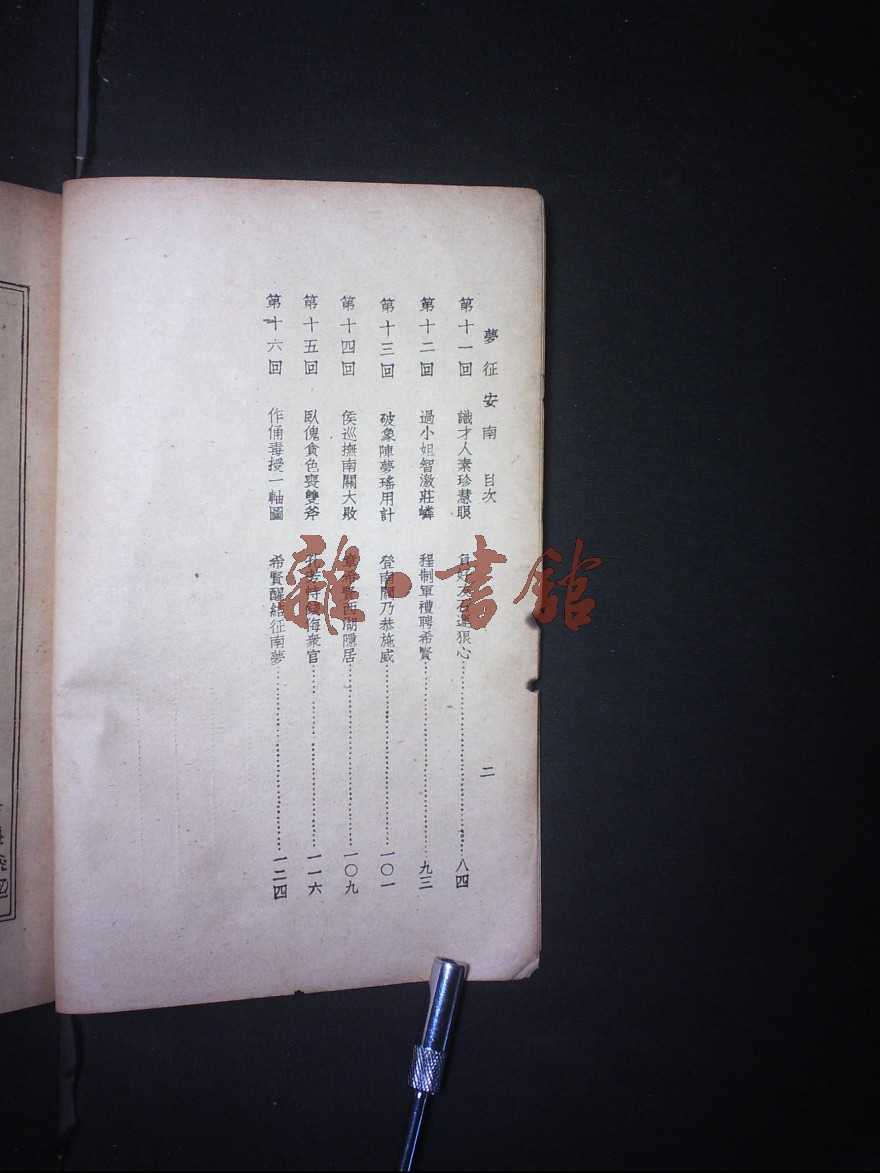 夢征安南 目次 二
第十一回 識才人素珍慧眼 負好友石蓮狠心 八四
第十二回 過小姐智激莊嶙 程制軍禮聘希賢 九三
第十三回 破象陣夢瑤用計 登南關乃恭施威 一〇一
第十四回 侯巡撫南關大敗 章希賢西湖隱居 一〇九
第十五回 臥傀貪色喪雙斧 孔若特 侮衆官 一一六
第十六回 作俑毒授一軸圖 希賢醒結征南夢 一二四
雜·書館